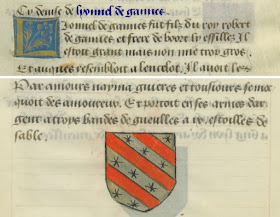 Cy deuise de lyonnel de gannes
Lionnel de gannes fut filz du roy robert
de gannes et frere de boort lessillez. Il
estoit grant mais non mie trop gros.
Et auques resembloit a lancelot. Il auoit les
Par amours nayma gueres et tousiours se moc
quoit des amoureux. Et portoit en ses armes dar
gent a troys bandes de gueulles a estoilles de
sable.